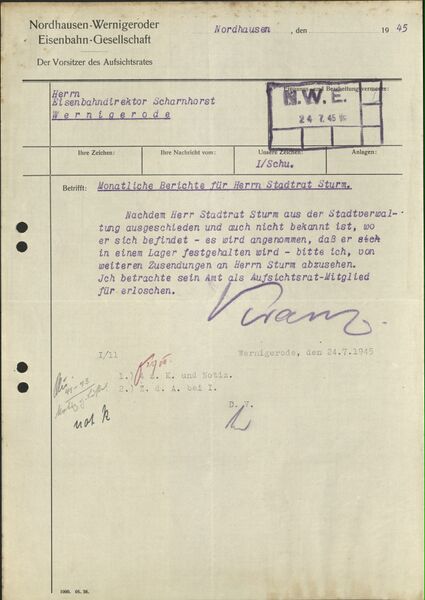 Nordhausen-Wernigeroder
Eisenbahn-Gesellschaft
Der Vorsitzer des Aufsichtsrates
Nordhausen, den 19 45
Herrn
Eisenbahndirektor Scharnhorst
Wernigerode
N.W.E.
24 7.45
Ihre Zeichen: Ihre Nachricht vom: Unsere Zeichen: Anlagen:
I/Schu.
Betrifft: Monatliche Berichte für Herrn Stadtrat Sturm.
Nachdem Herr Stadtrat Sturm aus der Stadtverwal-
tung ausgeschieden und auch nicht bekannt ist, wo
er sich befindet - es wird angenommen, daß er sich
in einem Lager festgehalten wird - bitte ich, von
weiteren Zusendungen an Herrn Sturm abzusehen.
Ich betrachte sein Amt als Aufsichtsrat-Mitglied
für erloschen.
I/11 Wernigerode, den 24.7.1945
1.) K. und Notiz.
2.) Z. d. A. bei I.
D. V.